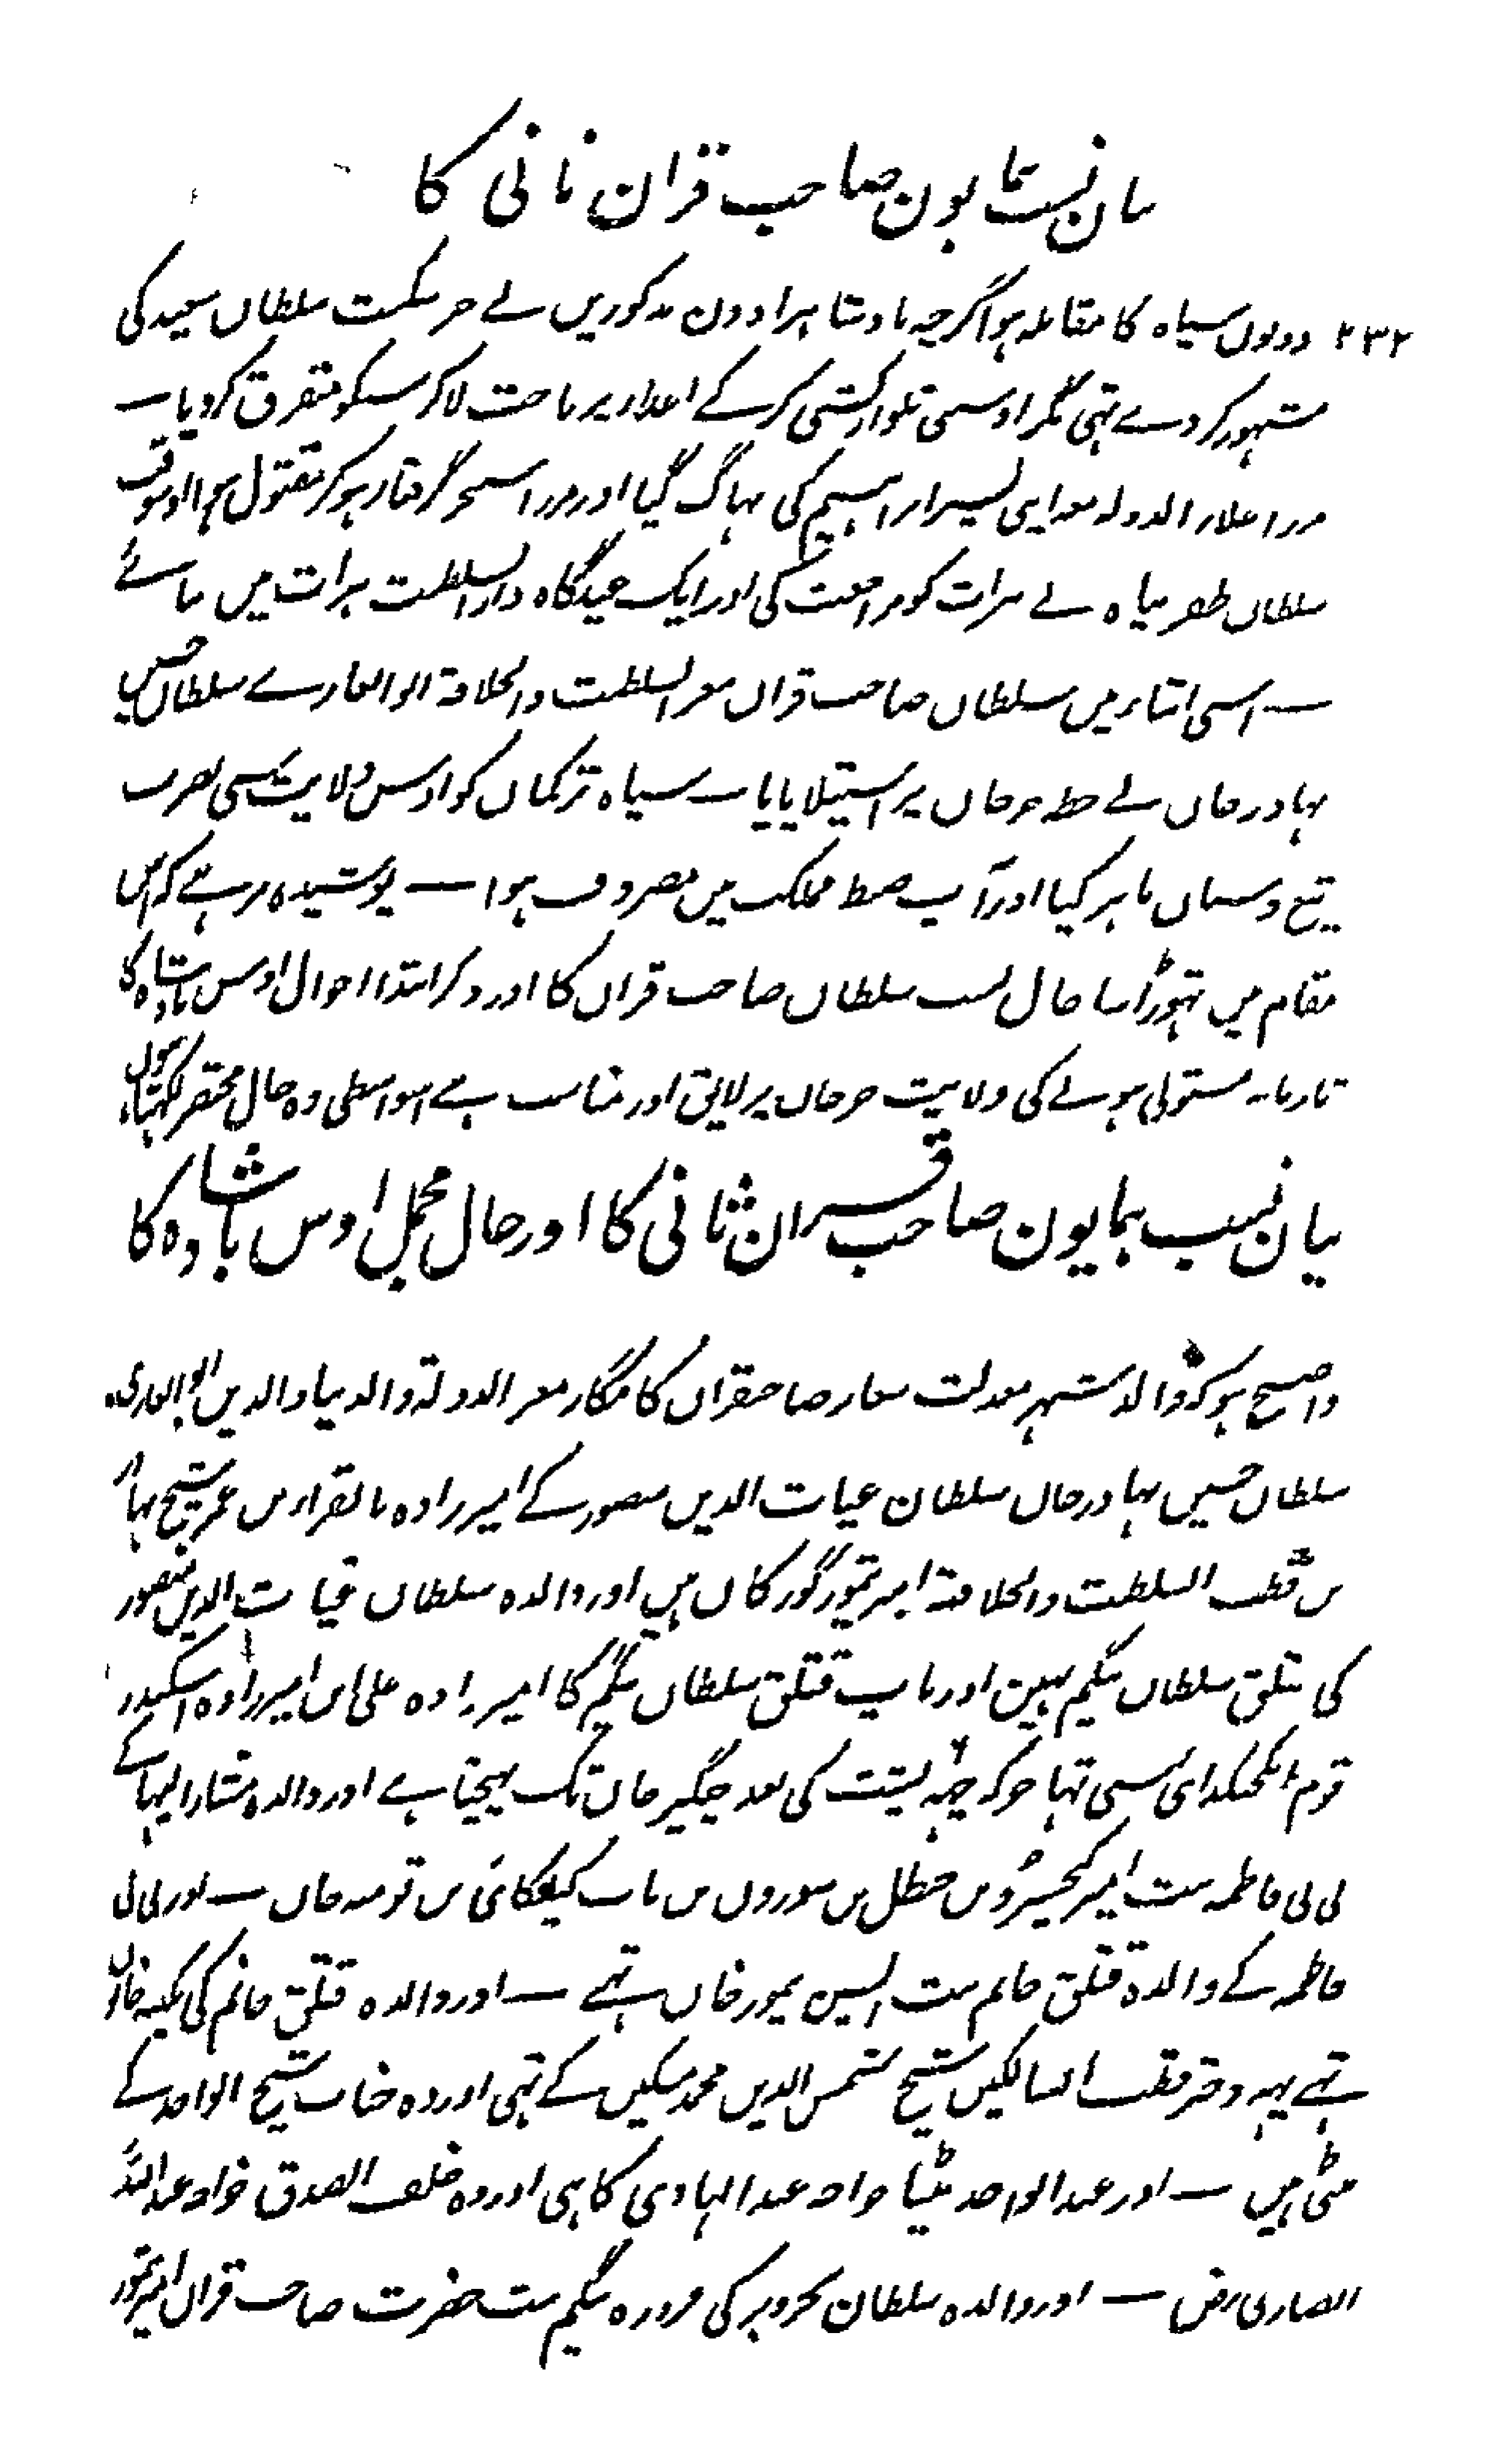 بیان نسب ہمایون صاحب قران ثانی کا
۲۳۲ دونوں سپاہ کا مقابلہ ہوا اگرچہ بادشاہزادون مذکورین نے سلطان سعید کی
کر دے تہی مگر اوسی تلوار کشی کر کے اعدا پر لا کر سبکو متفرق کر دیا ۔
مرزا علاء الدولہ معہ اپنی پسر ابراہیم کی بہاگ گیا اور مرزا سنجر گرفتار ہو کر مقتول ہوا اوسوقت
سلطان ظفر پناہ نے ہرات کو مراجعت کی اور ایک عیدگاہ دار السلطنت ہرات میں بنائے
۔ اسی اثنا میں سلطان صاحب قران معز السلطنت والخلافۃ ابو الغازے سلطان حسین
بہادر خان نے خطہ جرجان پر استیلا پایا ۔ سپاہ ترکمان کو اوس ولایت سی بضرب
تیغ و سنان باہر کیا اور آپ ضبط مملکت میں مصروف ہوا ۔ پوشیدہ نرہے کہ اس
مقام میں تہوڑا سا حال نسب سلطان صاحب قران کا اور ذکر ابتدا احوال اوس بادشاہ کا
تا زمانہ مستولی ہونے کی ولایت جرجان پر لایق اور مناسب ہے اسواسطی وہ حال مختصر لکہتا ہوں
بیان نسب ہمایون صاحب قران ثانی کا اور حال مجمل اوس بادشاہ کا
واضح ہو کہ والد شہر معدلت شعار صاحبقران کامگار معز الدولۃ والدنیا والدین ابو الغازی
سلطان حسین بہادر خان سلطان غیاث الدین منصور کے امیر زادہ بایقرا بن عمر شیخ بہادر
بن قطب السلطنت والخلافۃ امیر تیمور گورکان ہیں اور والدہ سلطان غیاث الدین منصور
کی قتلق سلطان بیگم ہیں اور باپ قتلق سلطان بیگم کا امیر زادہ علی بن امیر زادہ اسکندر
قوم سی تہا جو کہ چہہ پشت کی بعد چنگیز خان تک پہنچتا ہے اور والدہ مشار الیہا کے
بی بی فاطمہ بنت امیر کیخسرو بن بن بن بن خان ۔ اور بی بی
فاطمہ کے والدۃ قتلق خانم بنت تیمور خان تہے ۔ اور والدہ قتلق خانم کی
تہے یہہ دختر قطب السالکین شیخ شمس الدین محمد مسکین کے تہی اور وہ جناب شیخ الواحد کے
بیٹی ہیں ۔ اور عبد الواحد بیٹیا خواجہ عبد الہادی کا ہی اور وہ خلف الصدق خواجہ عبد اللہ
انصاری رض ۔ اور والدہ سلطان بحر و بر کی فیروزہ بیگم بنت حضرت صاحب قران امیر تیمور